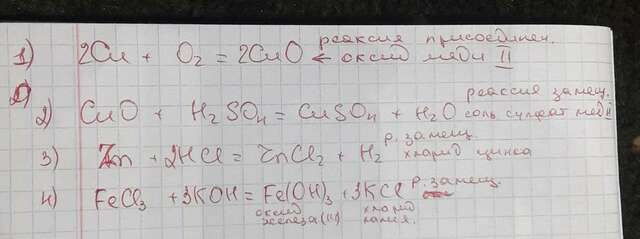 реакция присоединен.
1) 2Cu + O₂ = 2CuO ← оксид меди II
реакция замещ.
2) CuO + H₂SO₄ = CuSO₄ + H₂O соль сульфат меди II
р. замещ.
3) Zn + 2HCl = ZnCl₂ + H₂ хлорид цинка
4) FeCl₃ + 3KOH = Fe(OH)₃ + 3KCl р. замещ.
оксид хлорид
железа (III) калия.